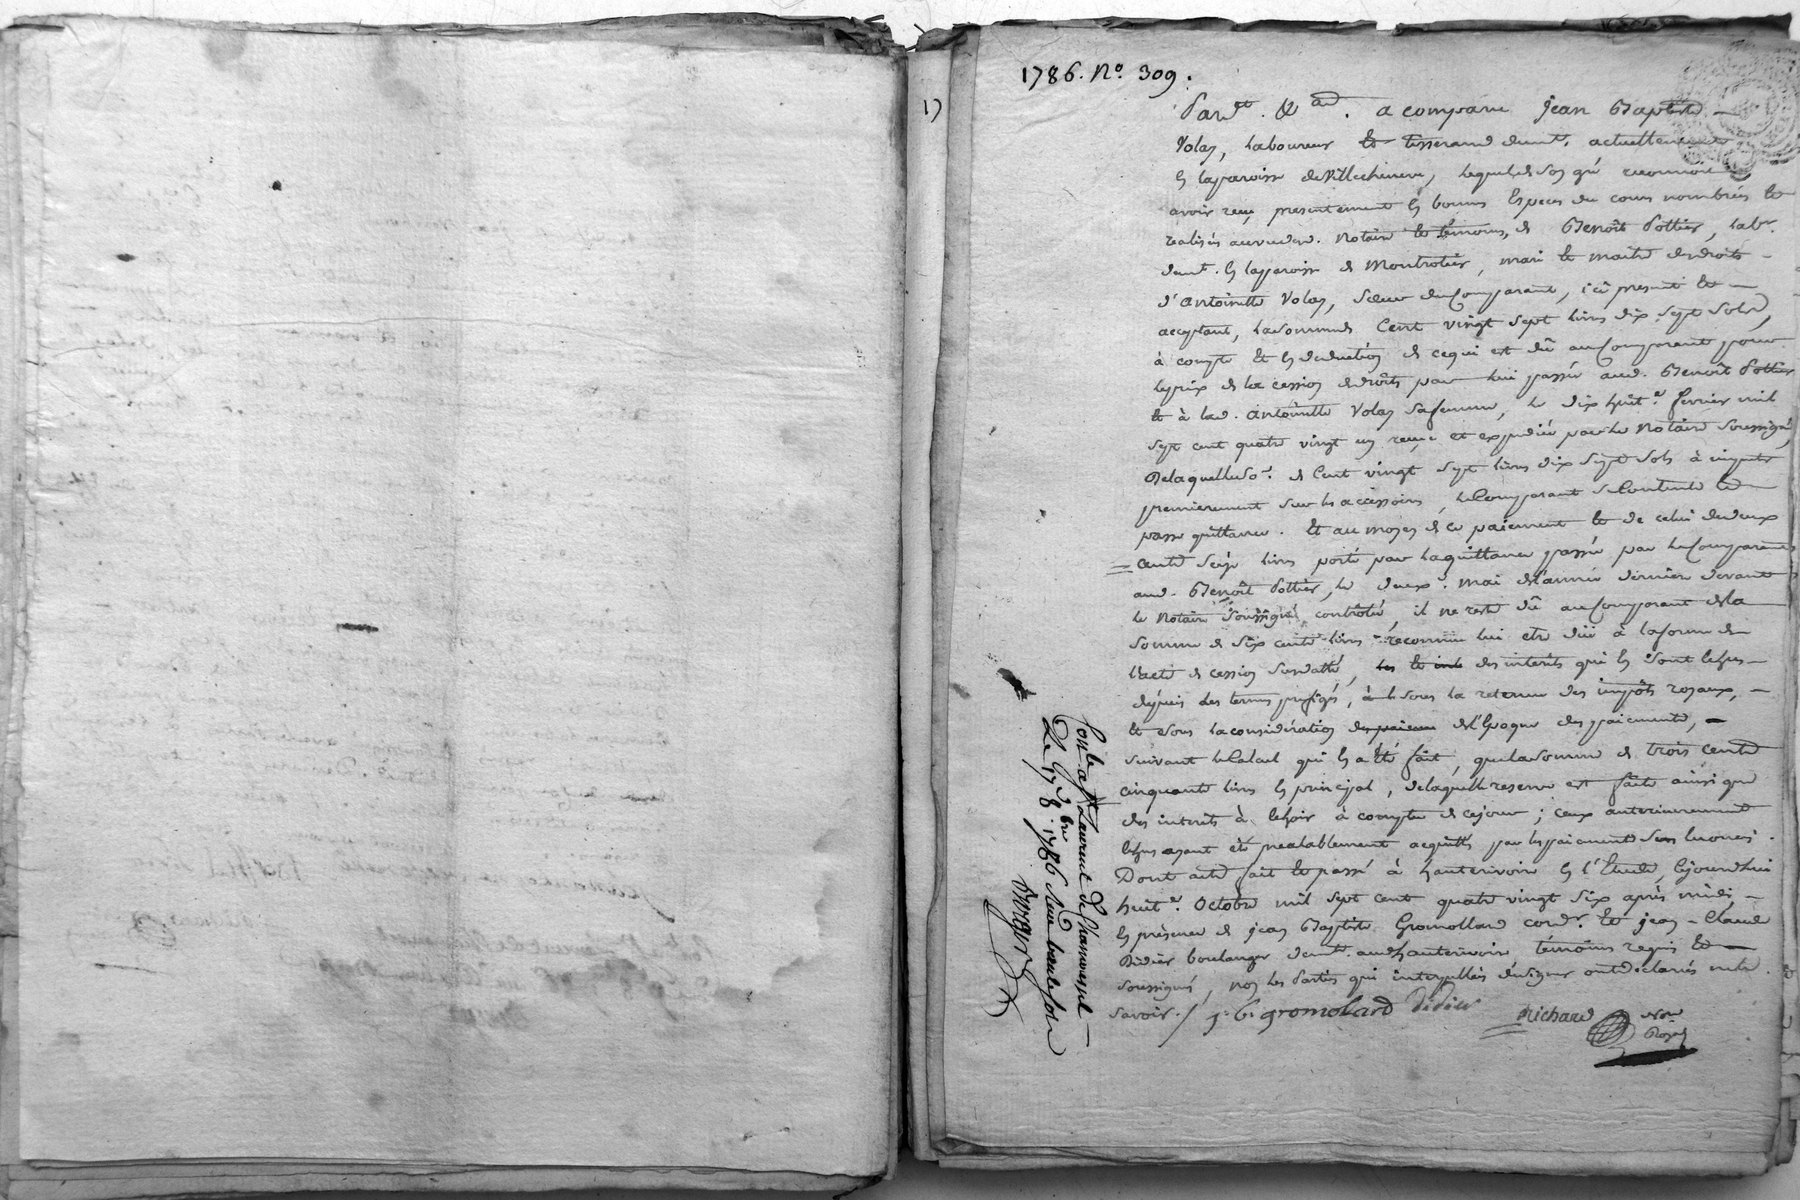 1786. No. 309.
17
Pardt. &a. a comparu jean Baptiste
Volay, Laboureur et tisserand demt. actuellement
en la paroisse de Villecheneve, Lequel de son gré reconnoit
avoir reçu presentement en bonnes Especes du cours nombrées et
realisés au vu dud. Notaire et témoins, de Benoît Pottier, labr.
demt. en la paroisse de Montrotier, mari et maitre des droits
d'antoinette Volay, Soeur du Comparant, ici present et
acceptant, la somme de Cent vingt sept livres dix sept Sols,
à compte et en deduction de ce qui est dû au Comparant pour
le prix de la cession de droits par lui passée aud. Benoît Pottier
et à lad. antoinette Volay sa femme, le dix huite. fevrier mil
sept cent quatre vingt un reçue et expediée par le Notaire Soussigné,
De laquelle so.e de Cent vingt sept livres dix sept sols à imputer
premierement sur les accessoires, le Comparant se Contente et
passe quittance. Et au moyen de ce paiement et de celui de deux
cents seize livres porté par la quittance passée par le Comparant
aud. Benoît Pottier, le deuxe. mai de l'année derniere devant
le Notaire soussigné, contrôlée, il ne reste dû au Comparant de la
somme de Six cents livres reconnue lui etre duë à la forme de
l'acte de cession susdatté, des interêts qui en sont
depuis les termes prefigés, sous la retenue des impôts royaux,
et sous la considération de l'Epoque des paiements,
suivant le Calcul qui en a Eté fait, que la somme de trois cents
cinquante livres en principal, de laquelle reserve est faite ainsi que
des interets à échoir à compter de ce jour ; ceux anterieurement
échus ayant été prealablement acquittés par les paiements
Dont acte fait et passé à hauterivoire en l'Etude, Ce jourd'hui
huite. Octobre mil sept cent quatre vingt six après midi,
en présence de jean Baptiste Gromollard cordr. et jean - Claude
Didier boulanger demt. aud hauterivoire témoins requis et
soussignés, non les Parties qui interpellées de signer ont déclarés ne le
savoir. / j. b. gromolard Didier Richard Nore. Royal
Conlé a St Laurent de Chamousset
Le 17 8bre 1786
Berger